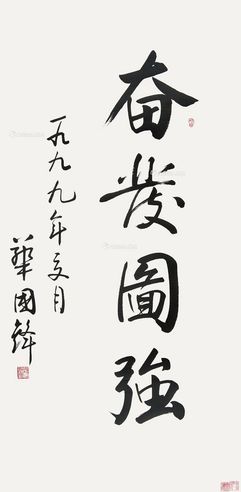 奋發圖強
一九九九年五月
華國鋒